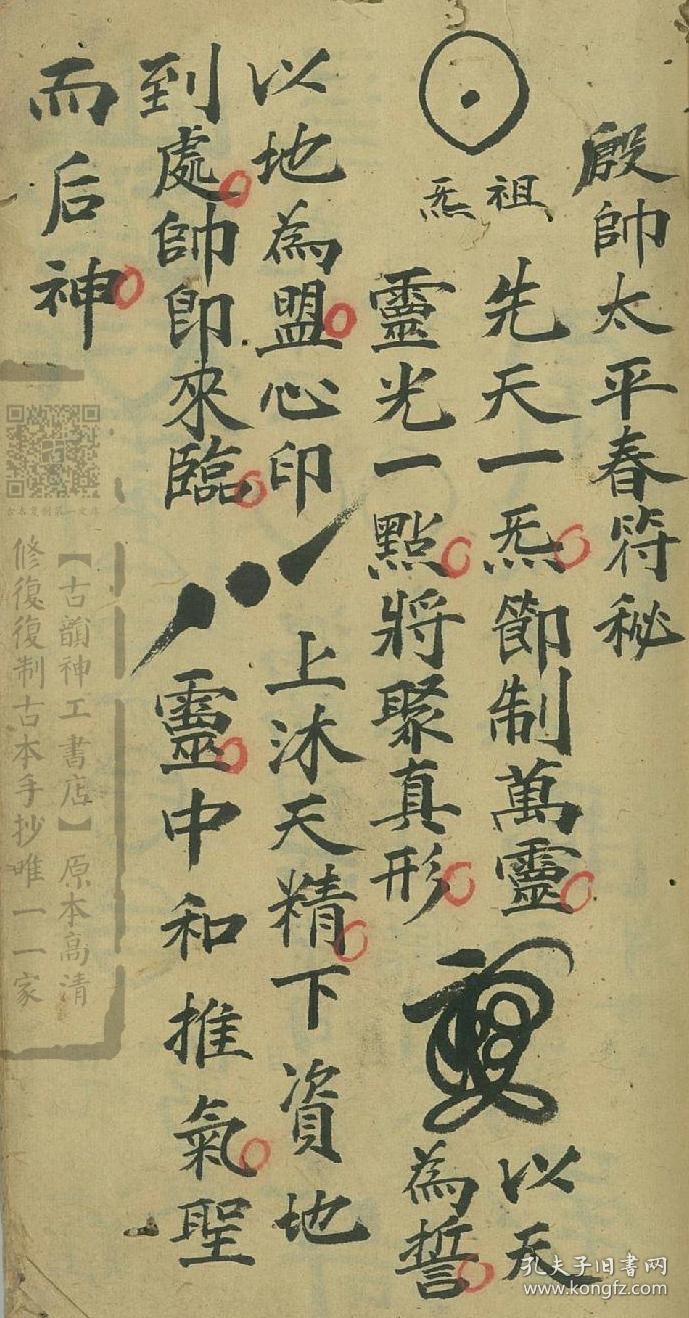 殷帥太平春符秘
祖炁
先天一炁節制萬靈
靈光一點將聚真形
以天
為誓
以地為盟心印
到處帥即來臨
上沐天精下資地
靈中和推氣聖
而后神
【古韻神工書店】原本高清
修復復制古本手抄唯一一家
孔夫子旧书网
www.kongfz.com